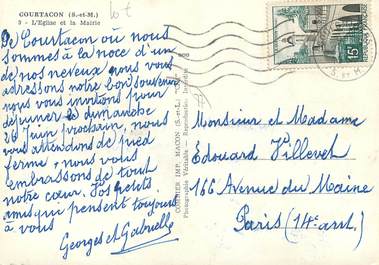 COURTACON (S.-et-M.)
3 - L'Eglise et la Mairie
De Courtacon où nous
sommes à la noce d'un
de nos neveux nous vous
adressons notre bon souvenir
nous vous invitons pour
déjeuner le dimanche
26 Juin prochain, nous
vous attendons de pied
ferme, nous vous
embrassons de tout
notre cœur. Vos petits
amis qui pensent toujours
à vous
Georges et Gabrielle
COMBIER IMP. MACON (S.-et-L.)
Photographie Véritable - Reproduction Interdite
15F
S. ET M.
Monsieur et Madame
Edouard Villevet
166 Avenue du Maine
Paris (14e arrt.)